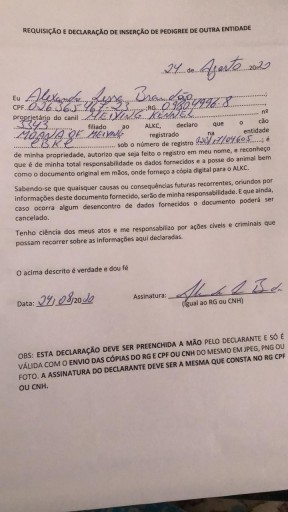 REQUISIÇÃO E DECLARAÇÃO DE INSERÇÃO DE PEDIGREE DE OUTRA ENTIDADE
24 de Agosto 2020
Eu Alexandre
CPF RG
proprietário do canil MEIVING KENNEL nº
5343 filiado ao ALKC, declaro que o cão
MOANA OF MEIVING registrado na entidade
CBKC sob o número de registro é
de minha propriedade, autorizo que seja feito o registro em meu nome, e reconheço
que é de minha total responsabilidade os dados fornecidos e a posse do animal bem
como o documento original em mãos, onde forneço a cópia digital para o ALKC.
Sabendo-se que quaisquer causas ou consequências futuras recorrentes, oriundos por
informações deste documento fornecido, serão de minha responsabilidade. E que ainda,
caso ocorra algum desencontro de dados fornecidos o documento poderá ser
cancelado.
Tenho ciência dos meus atos e me responsabilizo por ações cíveis e criminais que
possam recorrer sobre as informações aqui declaradas.
O acima descrito é verdade e dou fé
Data: 24/08/2020 Assinatura:
(Igual ao RG ou CNH)
OBS: ESTA DECLARAÇÃO DEVE SER PREENCHIDA A MÃO PELO DECLARANTE E SÓ É
VÁLIDA COM O ENVIO DAS CÓPIAS DO RG E CPF OU CNH DO MESMO EM JPEG, PNG OU
FOTO. A ASSINATURA DO DECLARANTE DEVE SER A MESMA QUE CONSTA NO RG CPF
OU CNH.